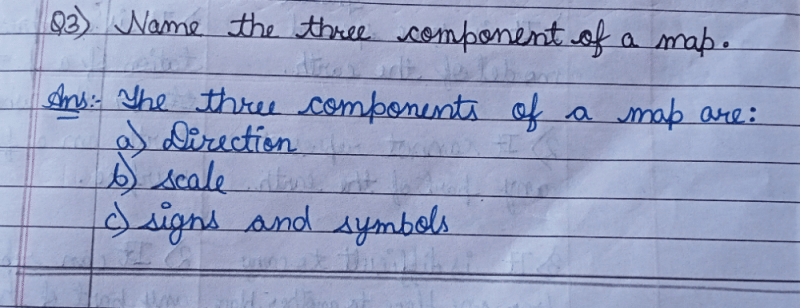 Q3) Name the three component of a map.
Ans:- The three components of a map are:
a) Direction
b) scale
c) signs and symbols